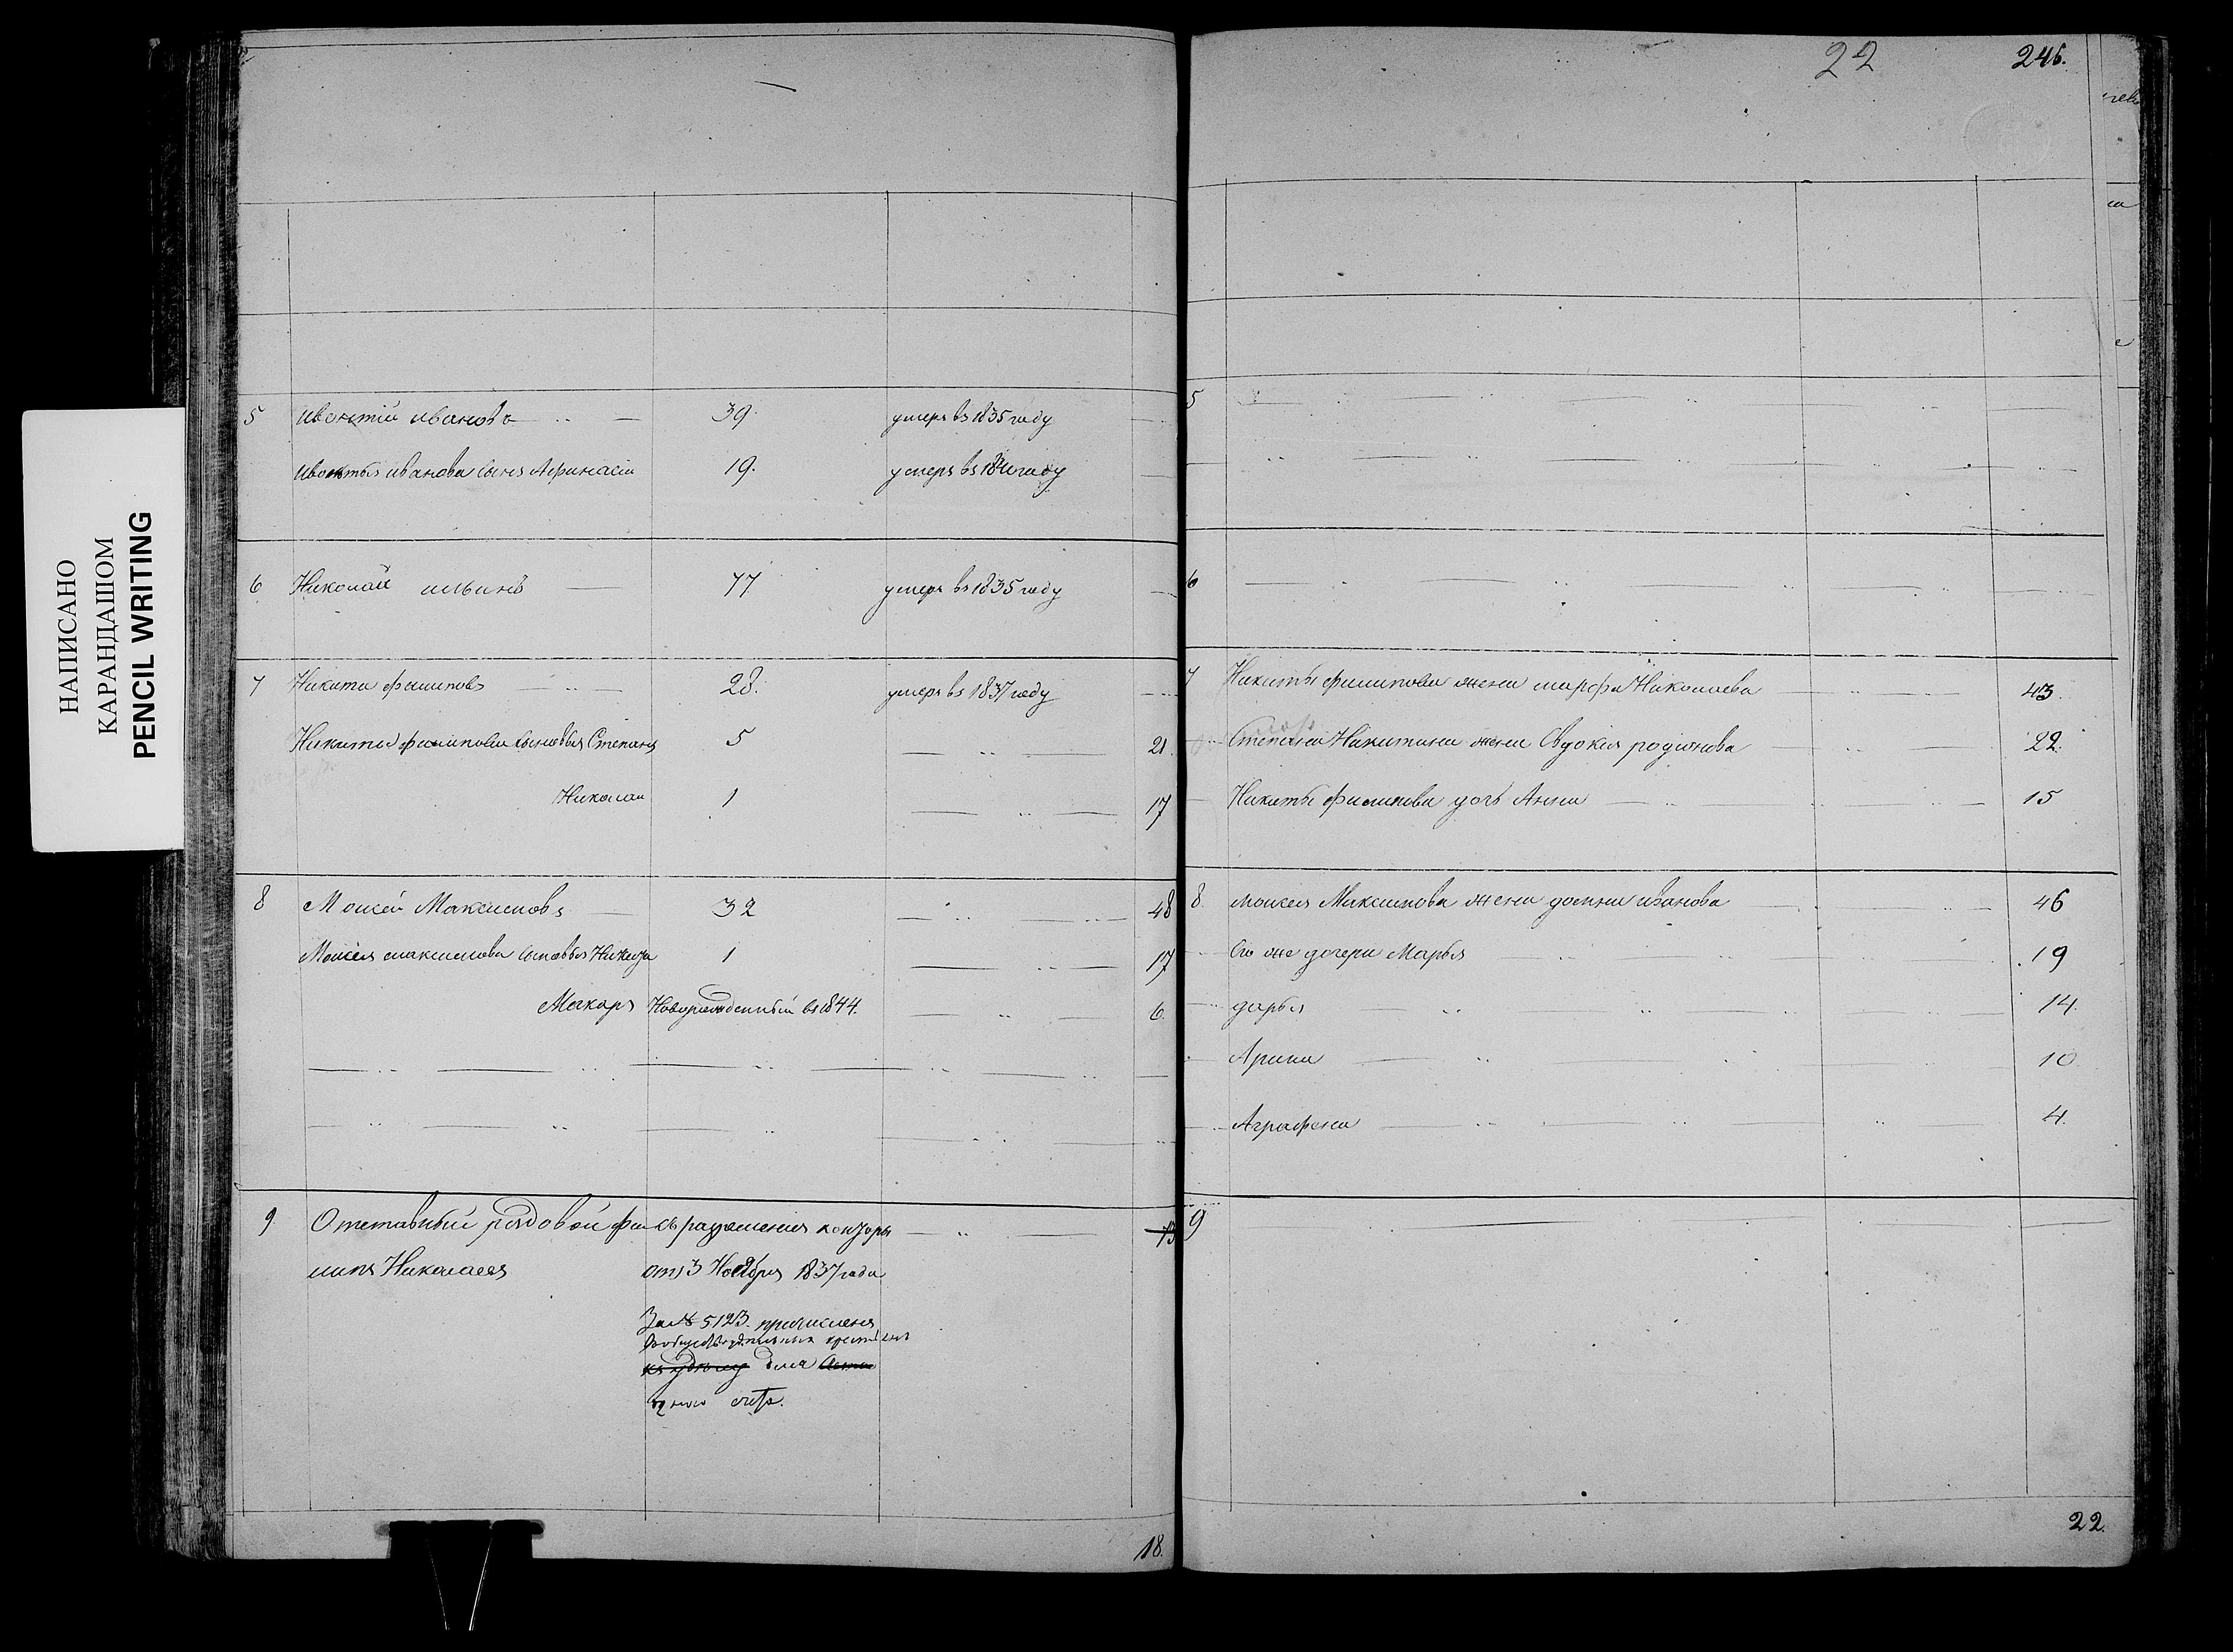 НАПИСАНО
КАРАНДАШОМ
PENCIL WRITING
5 Ивонтій Ивановъ 39. умеръ въ 1835 году
Ивонтья Иванова сынъ Афанасій 19. умеръ въ году
6 Николай Ильинъ 77 умеръ въ 1835 году
7 Никита Филиповъ 28. умеръ въ 1837 году
Никиты Филипова сыновья Степанъ 5 21.
Николай 1 17
8 Моисей Максимовъ 32 48
Моисея Максимова сыновья Никита 1 17
Макаръ Новорожденный въ 1844. 6.
9 Отставный рядовой Фи съ разрешения конторы 13
липъ Николаевъ отъ 3 Ноября 1837 года
За № 5123. причисленъ
для
счета.
18.
22 246.
5
6
7 Никиты Филипова жена Марфа Николаева 43.
Степана Никитина жена Евдокия Родионова 22.
Никиты Филипова дочь Анна 15
8. Моисея Максимова жена Домна Иванова 46
Его же дочери Марья 19
Дарья 14.
Арина 10
Аграфена 4.
9
22.